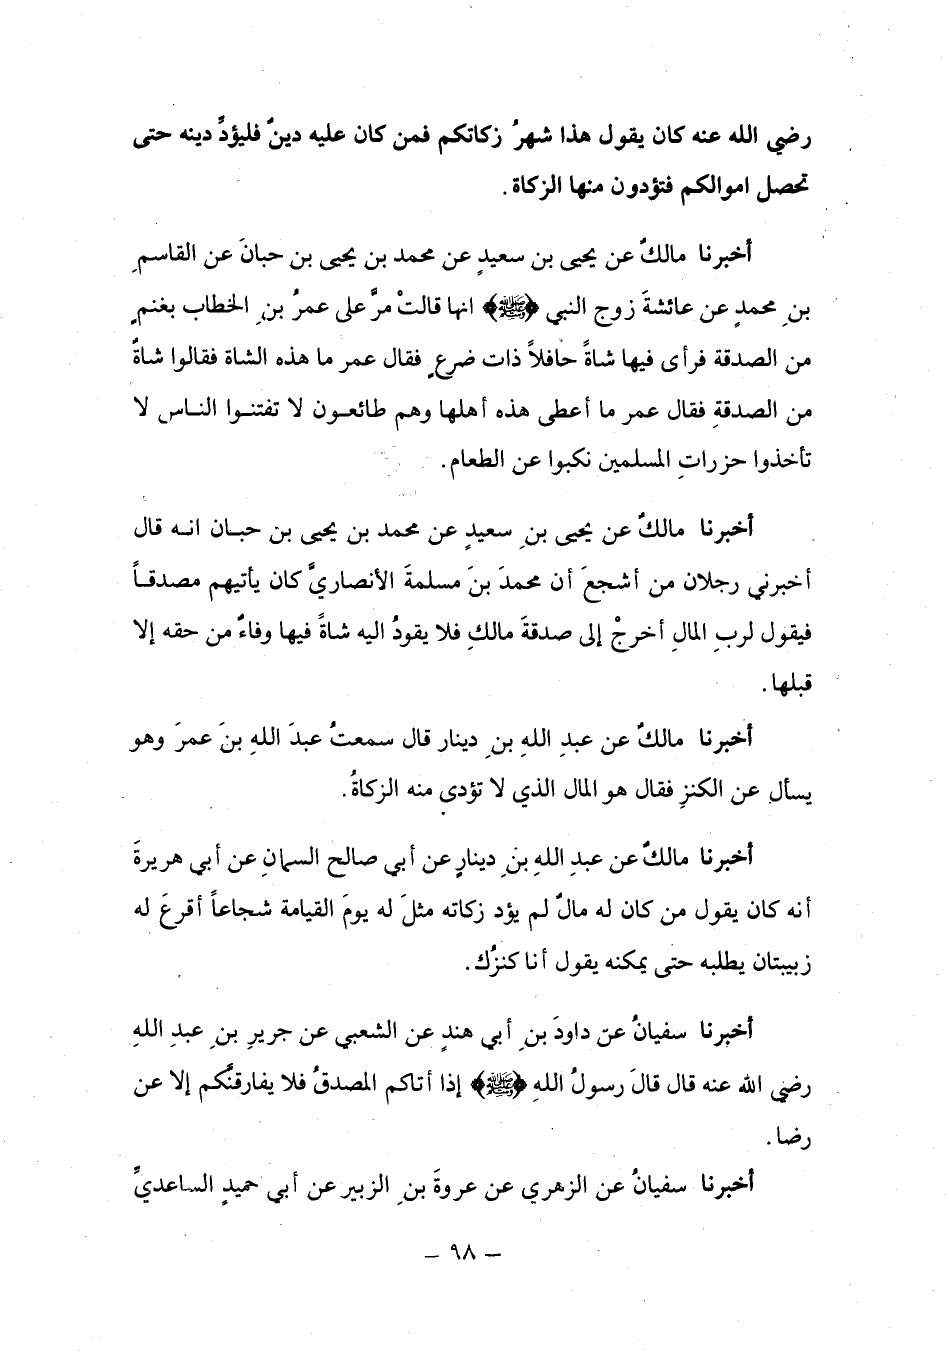 رضي الله عنه كان يقول هذا شهرُ زكاتكم فمن كان عليه دينٌ فليؤدِّ دينه حتى
تحصل اموالكم فتؤدون منها الزكاة .
أخبرنا مالكٌ عن يحيى بن سعيدٍ عن محمد بن يحيى بن حبانَ عن القاسمِ
بنِ محمدٍ عن عائشةَ زوج النبي ﴿ﷺ﴾ انها قالتْ مرَّ على عمرُ بنِ الخطاب بغنمٍ
من الصدقة فرأى فيها شاةً حافلاً ذات ضرعٍ فقال عمر ما هذه الشاة فقالوا شاةٌ
من الصدقةِ فقال عمر ما أعطى هذه أهلها وهم طائعون لا تفتنوا الناس لا
تأخذوا حزراتِ المسلمين نكبوا عن الطعام .
أخبرنا مالكٌ عن يحيى بنِ سعيدٍ عن محمد بن يحيى بن حبان انه قال
أخبرني رجلان من أشجعَ أن محمدَ بنَ مسلمةَ الأنصاريَّ كان يأتيهم مصدقاً
فيقول لربِ المالِ أخرجْ إلى صدقةَ مالكِ فلا يقودُ اليه شاةً فيها وفاءٌ من حقه إلا
قبلها .
أخبرنا مالكٌ عن عبدِ اللهِ بنِ دينار قال سمعتُ عبدَ اللهِ بنَ عمرَ وهو
يسأل عن الكنزِ فقال هو المال الذي لا تؤدى منه الزكاةُ .
أخبرنا مالكٌ عن عبدِ اللهِ بنِ دينارٍ عن أبي صالح السمانِ عن أبي هريرةَ
أنه كان يقول من كان له مالٌ لم يؤد زكاته مثلَ له يومَ القيامة شجاعاً أقرعَ له
زبيبتان يطلبه حتى يمكنه يقول أنا كنزُك .
أخبرنا سفيانُ عن داودَ بنِ أبي هندٍ عن الشعبي عن جريرِ بنِ عبدِ اللهِ
رضي الله عنه قال قالَ رسولُ اللهِ ﴿ﷺ﴾ إذا أتاكم المصدقُ فلا يفارقنَّكم إلا عن
رضا .
أخبرنا سفيانُ عن الزهري عن عروةَ بنِ الزبير عن أبي حميدٍ الساعديِّ
– ٩٨ –